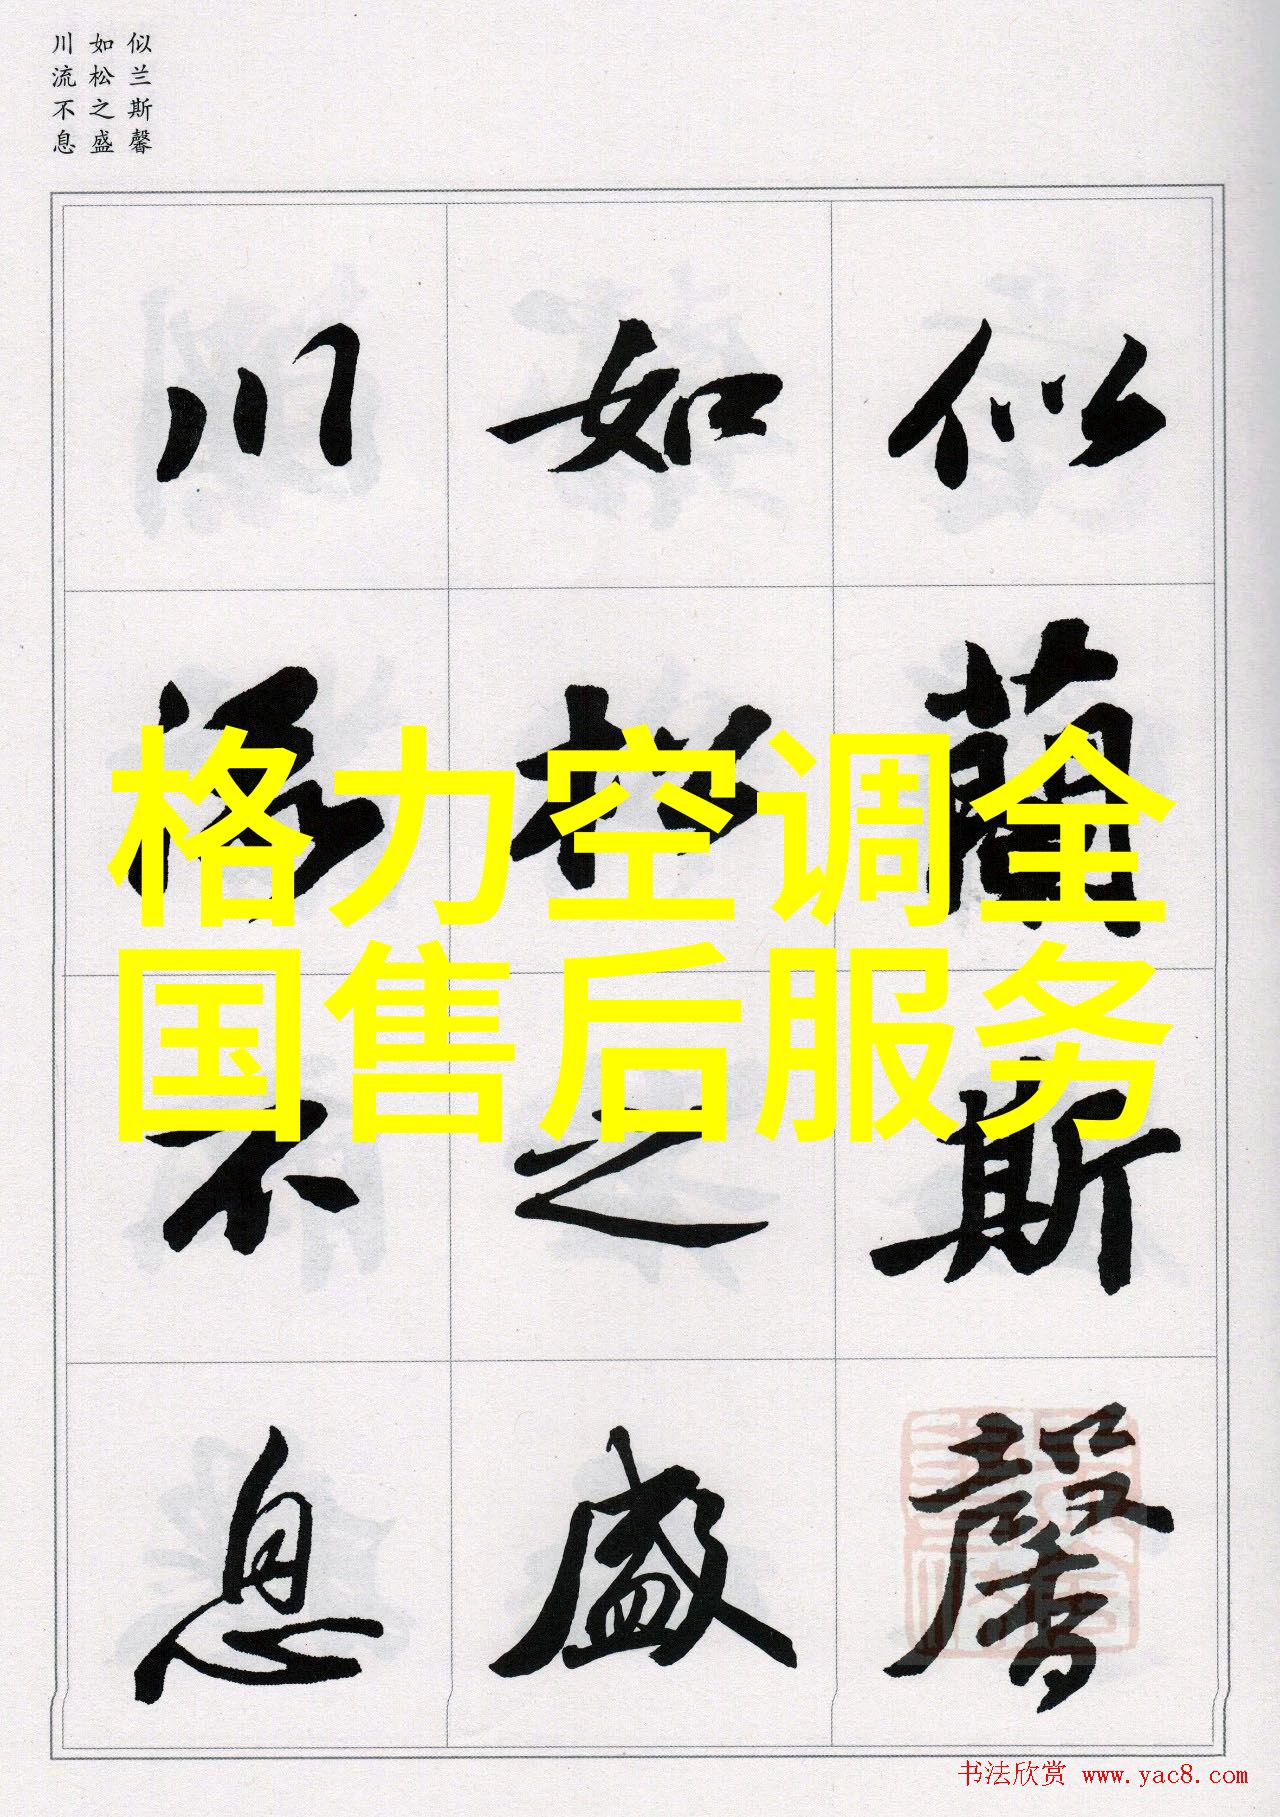 似兰斯馨
如松之盛
川流不息
似蘭斯馨
如松之盛
川流不息
格力空调全
国售后服务
书法欣赏 www.yac8.com